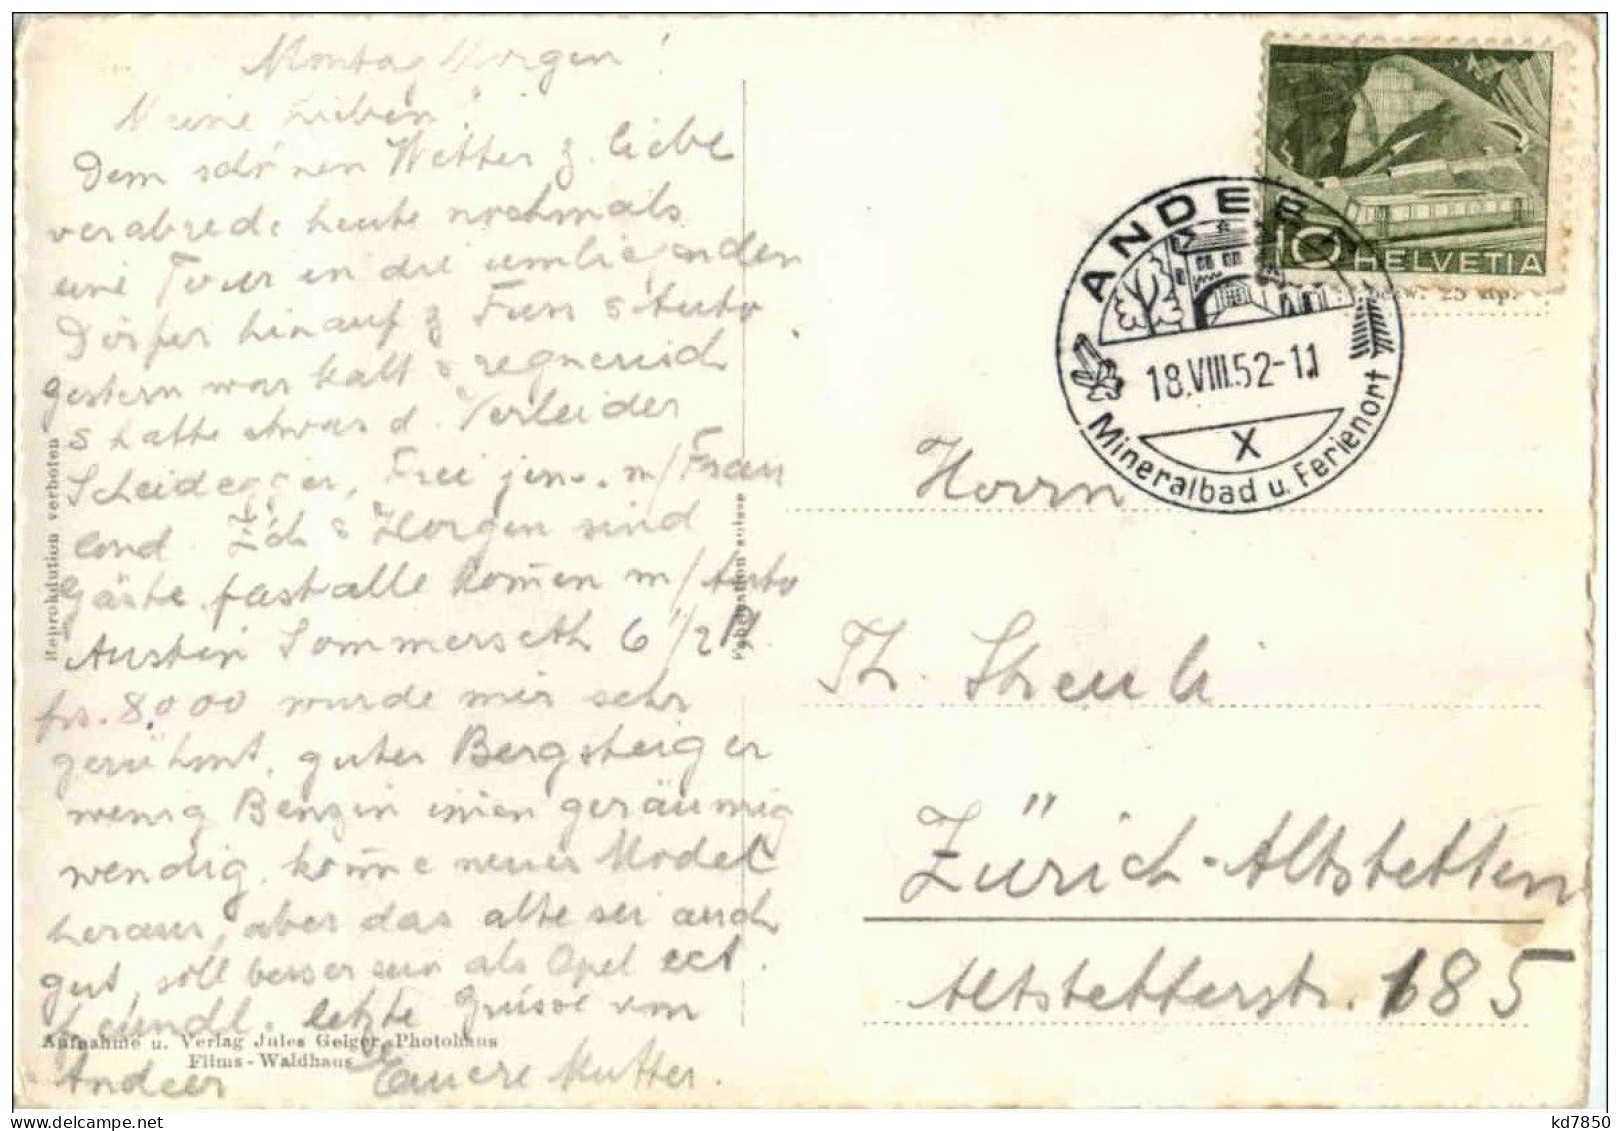 Montag Morgen!
Meine Lieben
Dem schönen Wetter z. liebe
verabrede heute nochmals
eine Tour in die umliegenden
Dörfer hinauf z Fuss s Auto
gestern war kalt & regnerisch
s hatte etwas d. Verleider
Scheidegger, Frei jen. m/ Frau
und Zch & Horgen sind
Gäste, fast alle kom̄en m/ Auto
Austin Sommerseth 6 1/2
frs. 8000 wurde mir sehr
gerühmt, guter Bergsteiger
wenig Benzin innen geräumig
wendig, kom̄e neues Model
heraus, aber das alte sei auch
gut, soll besser sein als Opel ect.
freundl. letzte Grüsse von
Andeer Eauere Mutter.
Reprokdution verboten
Aufnahme u. Verlag Jules Geiger, Photohaus
Flims - Waldhaus
10 HELVETIA
ANDEER
18.VIII.52-11
X
Mineralbad u. Ferienort
Herrn
Th. Scheuli
Zürich-Altstetten
Altstetterstr. 185
kd7850